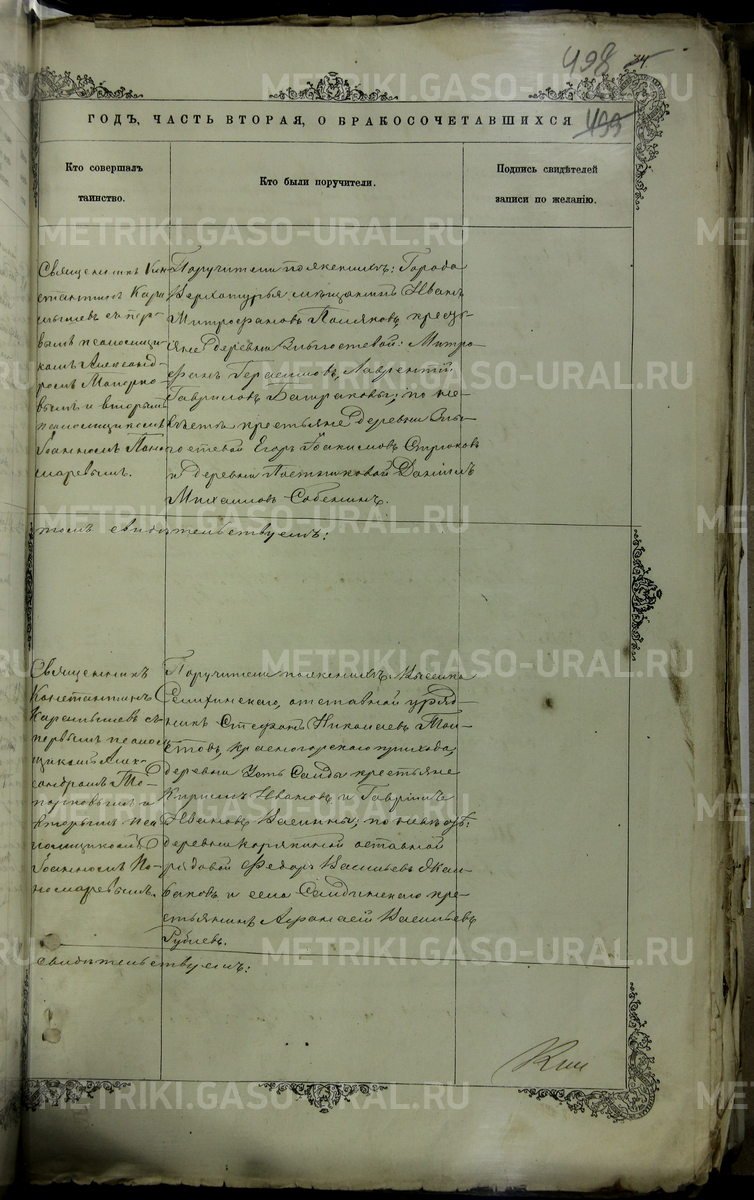 498
499
ГОДЪ, ЧАСТЬ ВТОРАЯ, О БРАКОСОЧЕТАВШИХСЯ
Кто совершалъ
таинство.
Кто были поручители.
Подпись свидѣтелей
записи по желанію.
Священникъ Кон
стантинъ Кара
мышевъ съ пер
вымъ псаломщи
комъ Александ
ромъ Топорко
вымъ и вторымъ
псаломщикомъ
Іоанномъ Поно
маревымъ.
Поручители по женихѣ: Города
Верхотурья мѣщанинъ Иванъ
Митрофановъ Поляковъ, кресть
яне деревни Митро
фанъ Герасимовъ, Лаврентій
Гавриловъ Батраковы; по не
вѣстѣ крестьяне деревни
Егоръ Іоакимовъ Стрюковъ
и деревни Постниковой Даніилъ
Михаиловъ Собенинъ.
томъ свидѣтельствуемъ:
Священникъ
Константинъ
Карамышевъ съ
первымъ псалом
щикомъ Алек
сандромъ То
порковымъ и
вторымъ пса
ломщикомъ
Іоанномъ По-
номаревымъ.
Поручители по женихѣ:
отставной уряд
никъ Стефанъ Николаевъ
Красногорскаго прихода,
деревни Усть Салды крестьяне
Кириллъ Ивановъ и Гавріилъ
Ивановъ по невѣстѣ:
деревни отставной
рядовой Федоръ Васильевъ
и села Салдинскаго кре
стьянинъ Аѳанасій Васильевъ
Рублевъ.
свидѣтельствуемъ:
METRIKI.GASO-URAL.RU